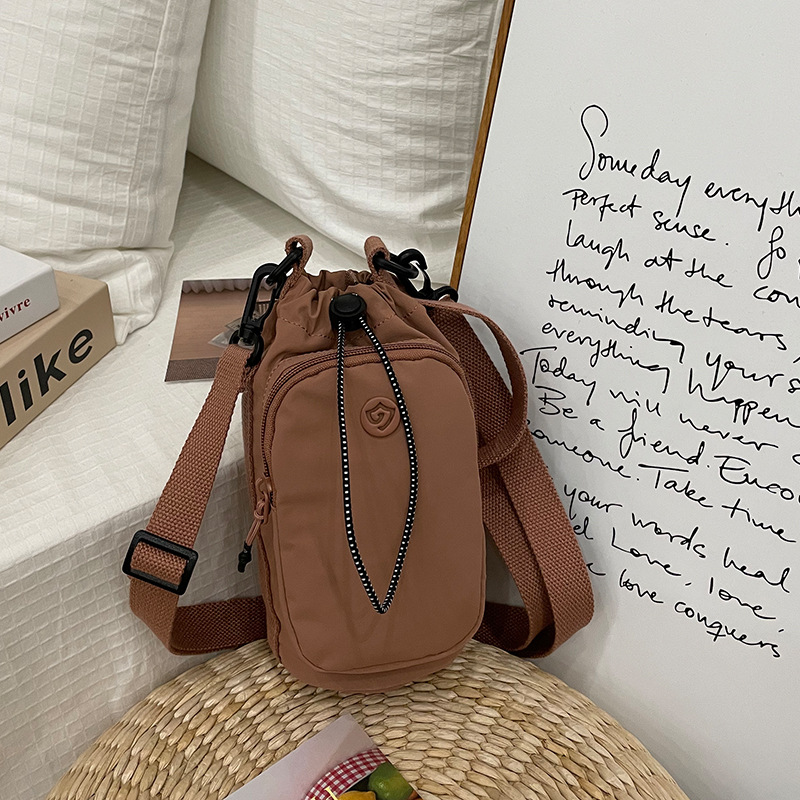 vivre
like
Someday everyth
Perfect sense. So
laugh at the con
through the tears,
reminding yours
everything happen
Today will never
Be a friend. Encou
someone. Take time
your words heal
Love, love,
love conquers